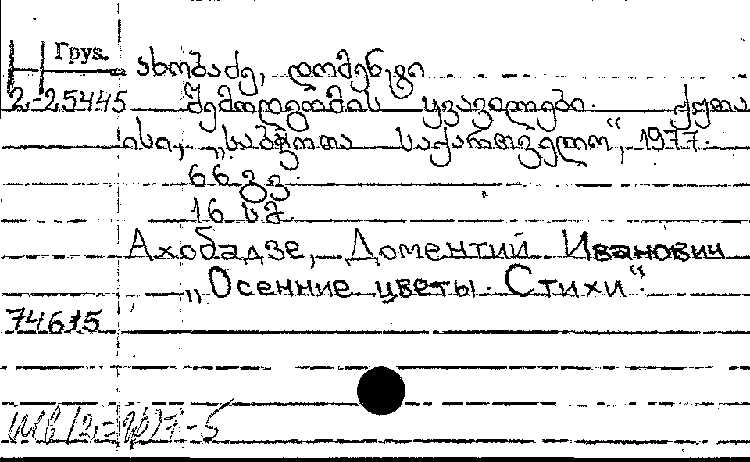 Груз.
ახობაძე, დომენტი
2-25445 შემოდგომის ყვავილები. ქუთა
ისი, „საბჭოთა საქართველო“, 1977.
66 გვ.
16 სმ
Ахобадзе, Доментий Иванович
„Осенние цветы. Стихи“.
74615